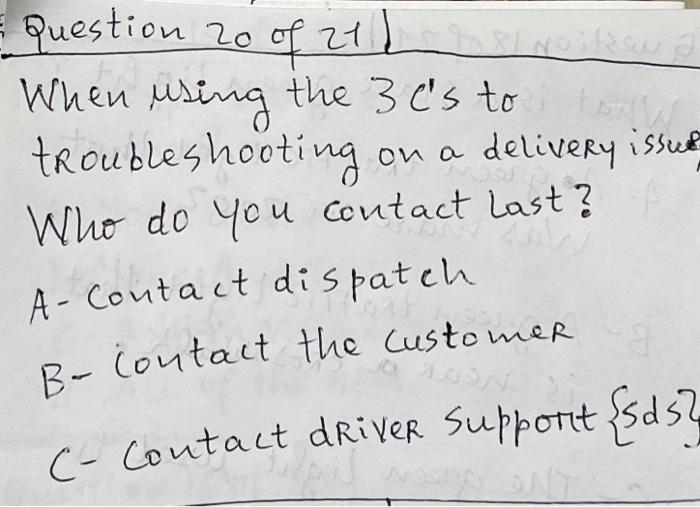 Question 20 of 21
When using the 3 C's to
troubleshooting on a delivery issue,
Who do you contact last?
A- Contact dispatch
B- Contact the customer
C- Contact driver support {sds}